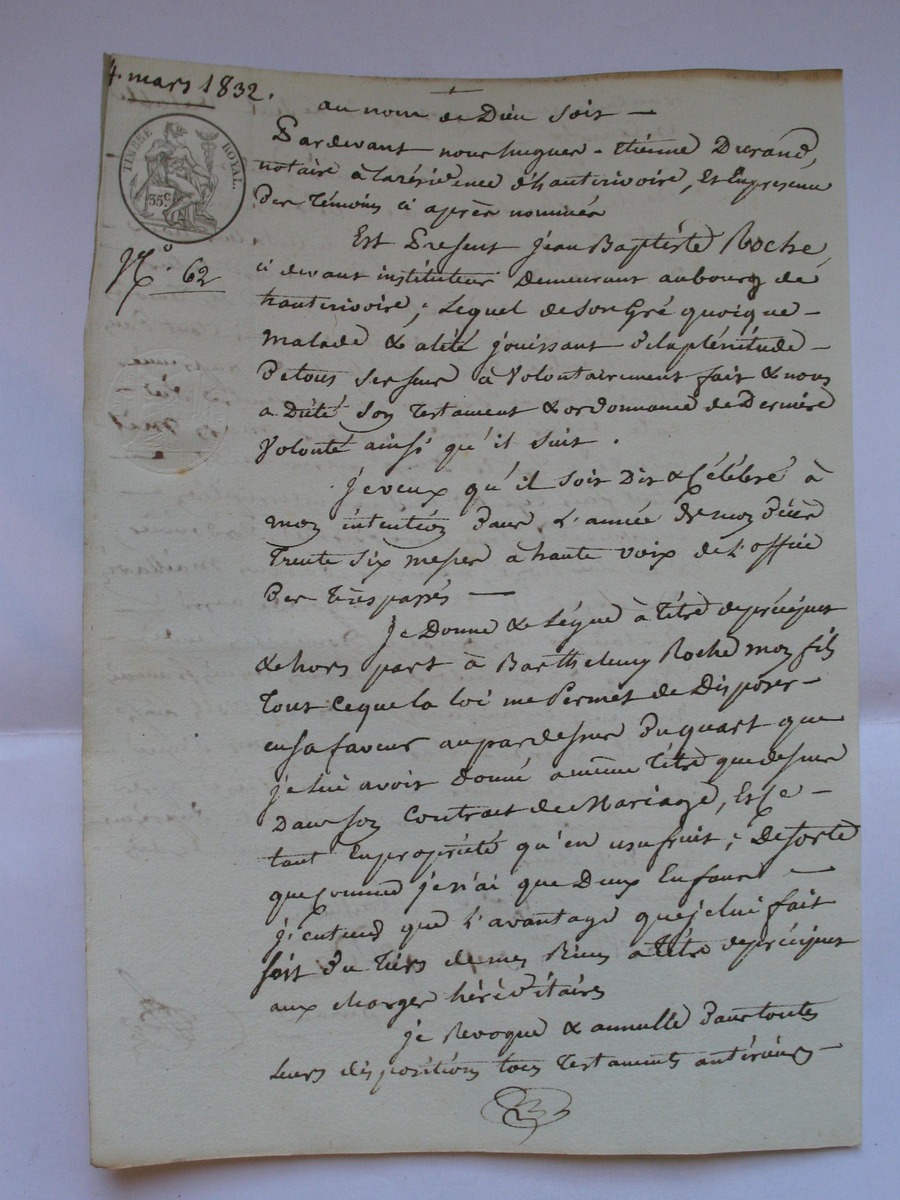 4. mars 1832.
au nom de Dieu soit —
Pardevant nous hugues - Etienne Durand,
notaire à la résidence d'hauterivoire, et en presence
Des Témoins ci après nommés
TIMBRE ROYAL.
35 c
Est Present jean Baptiste Roche,
N.o 62
ci devant instituteur Demeurant au bourg de
hauterivoire; Lequel de son gré quoique -
malade & alité jouissant de la plénitude -
De tous ses sens à Volontairement fait & nous
a Dicté son Testament & ordonnance de Dernière
Volonté ainsi qu'il suit.
Je veux qu'il soit Dit & Célébré à
mon intention Dans L'année de mon Décès
Trente six messes à haute voix de L'office
Des Trespassés —
Je Donne & Légue à titre de préciput
& hors part à Barthelemy Roche mon fils
Tout ce que la loi me Permet de Disposer -
en sa faveur au par dessus Du quart que
je lui avois donné a même titre que dessus
Dans son Contrat de Mariage, et ce -
tant En propriété qu'en usufruit; De sorte
que comme je n'ai que Deux Enfans —
j'entend que L'avantage que je lui fait
soit Du tiers de mes Biens a titre de préciput
aux charges héréditaires
Je Revoque & annulle Pour toutes
Leurs dispositions tous Testaments antérieurs —